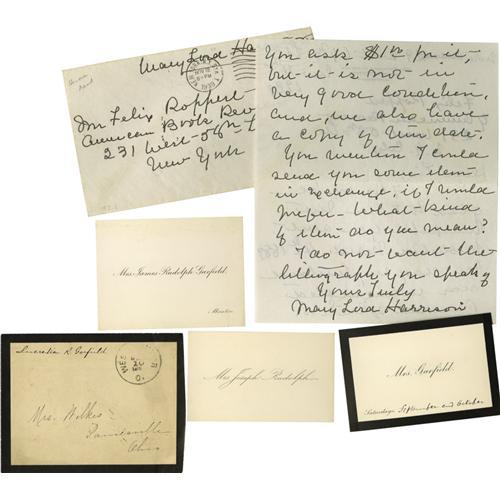 Mary Lord Ha
NOV 18
6 - PM
Mr Felix Roppert
American Book Rev
231 West 58th
New York
You ask $1.00 for it,
but it is not in
very good condition,
and, we also have
a copy of this date.
You mention I could
send you some item
in exchange, if I would
prefer - What kind
of item do you mean?
I do not want the
lithograph you speak of
Yours Truly
Mary Lord Harrison
Mrs. James Rudolph Garfield.
Mentor.
Lucretia R. Garfield
Mrs. Wilkes
Painesville
Ohio
Mrs Joseph Rudolph
Mrs. Garfield.
Saturdays September and October